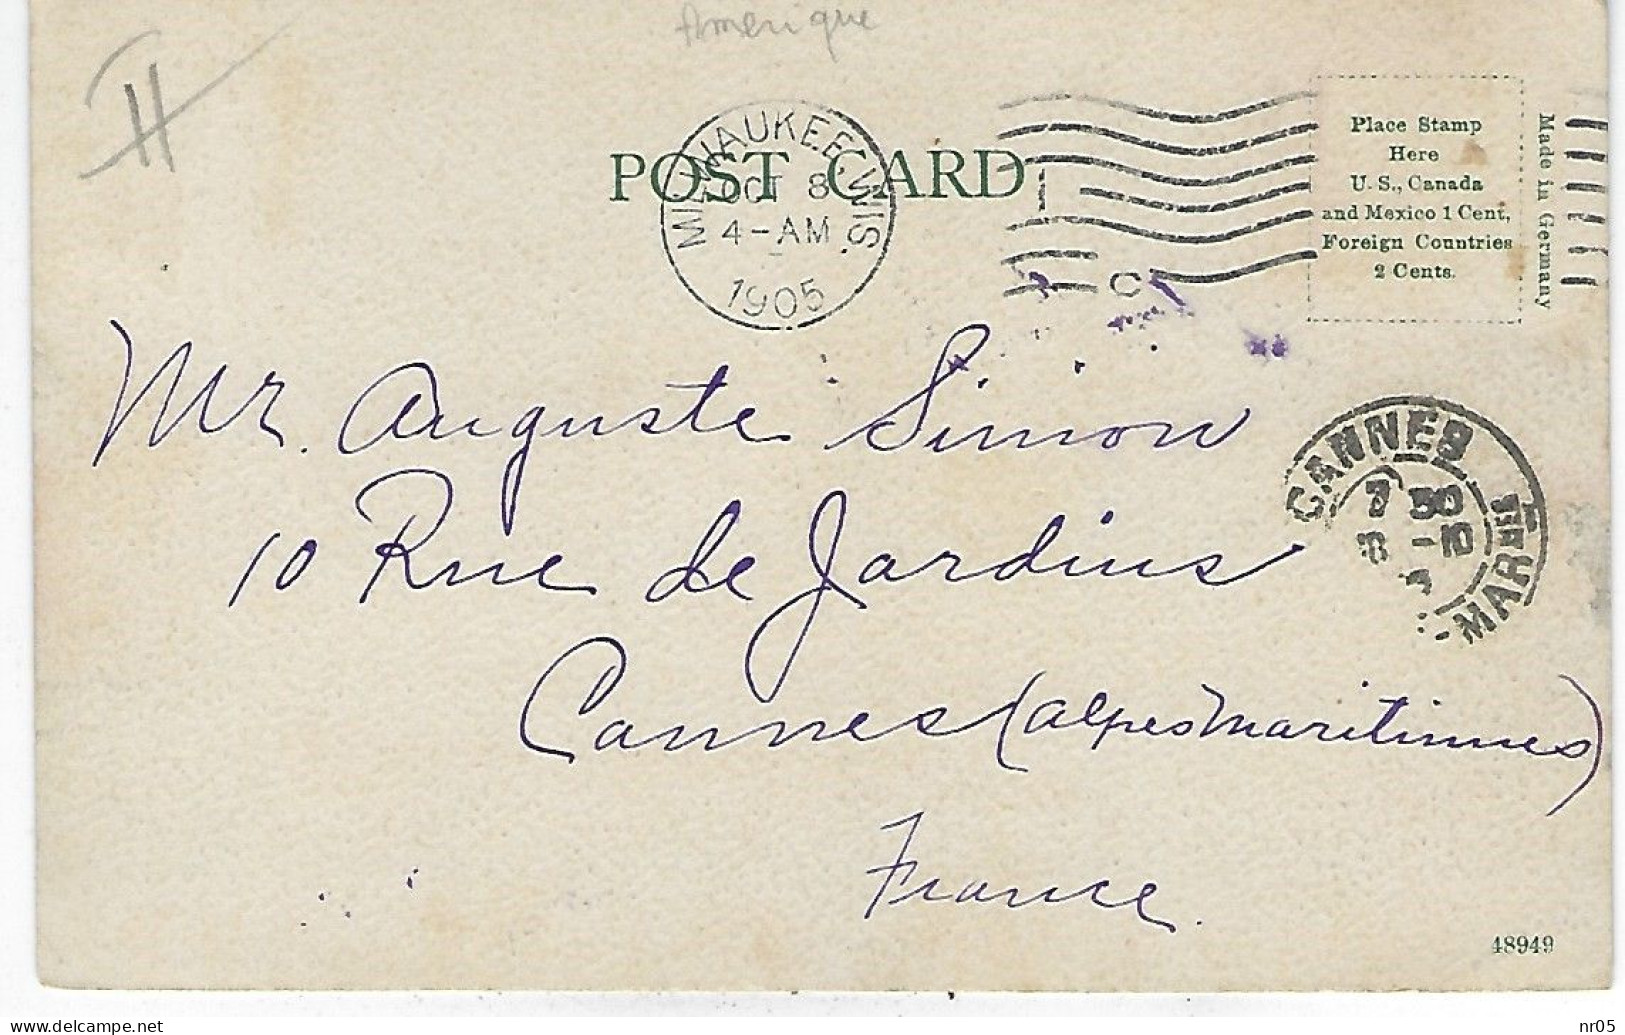 Amerique
H
POST CARD
MILWAUKEE, WIS.
OCT 8
4-AM
1905
C
Place Stamp
Here
U.S., Canada
and Mexico 1 Cent,
Foreign Countries
2 Cents.
Made in Germany
Mr. Auguste Simon
10 Rue de Jardins
Cannes (Alpes Maritimes)
France.
CANNES
7 30
8 -10
MARMES
48949
delcampe.net
nr05